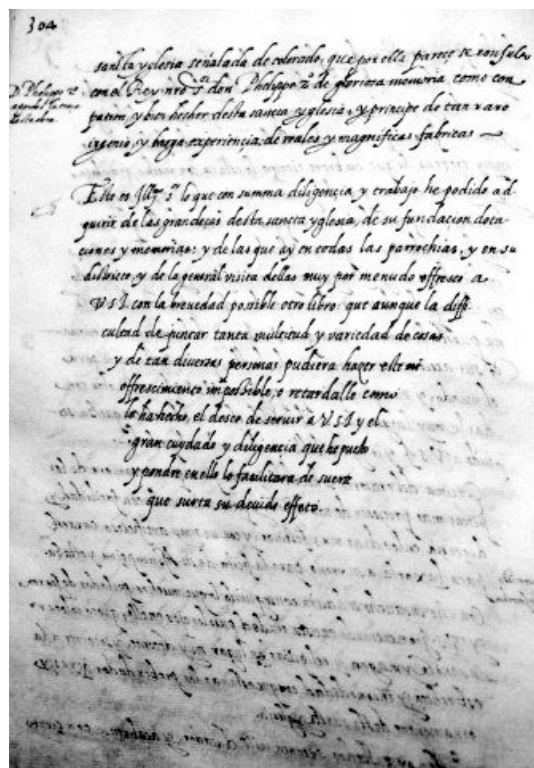 304
sancta yglesia señalada de colorado, que por ella parece se consulto
con el Rey nro sr don Phelippe 2º de gloriosa memoria como con
patron, y bien hechor desta sancta yglesia, y principe de tan raro
ingenio, y larga experiencia, de reales y magnificas fabricas
D. Phelippe 2º
Esto es Illmo sr lo que con summa diligencia y trabajo he podido ad-
quirir de las grandeças desta sancta yglesia, de su fundacion dota-
ciones y memorias: y de las que ay en todas las parrochias, y en su
districto, y de la general visita dellas muy por menudo offresco a
V S I. con la brevedad posible otro libro: que aunque la diffi-
cultad de juntar tanta multitud y variedad de cosas
y de tan diversas personas pudiera hazer este mi
offrescimiento impossible, o retardalle como
lo ha hecho, el deseo de servir a V S I. y el
gran cuydado y diligencia que he puesto
y pondre en ello lo facilitara de suerte
que surta su devido effeto.